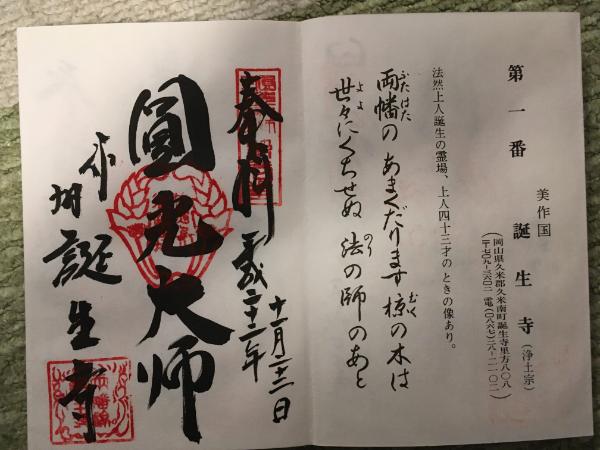 第一番 美作国 誕生寺（浄土宗）
（岡山県久米郡久米南町誕生寺里方八〇八
（〒七〇九-三六〇二 電（〇八六七）二八-二一〇二）
法然上人誕生の霊場、上人四十三才のときの像あり。
ふたはた むく
両幡の あまくだります 椋の木は
よよ のり
世々にくちせぬ 法の師のあと
奉拝 平成
圓光大師
作州 誕生寺